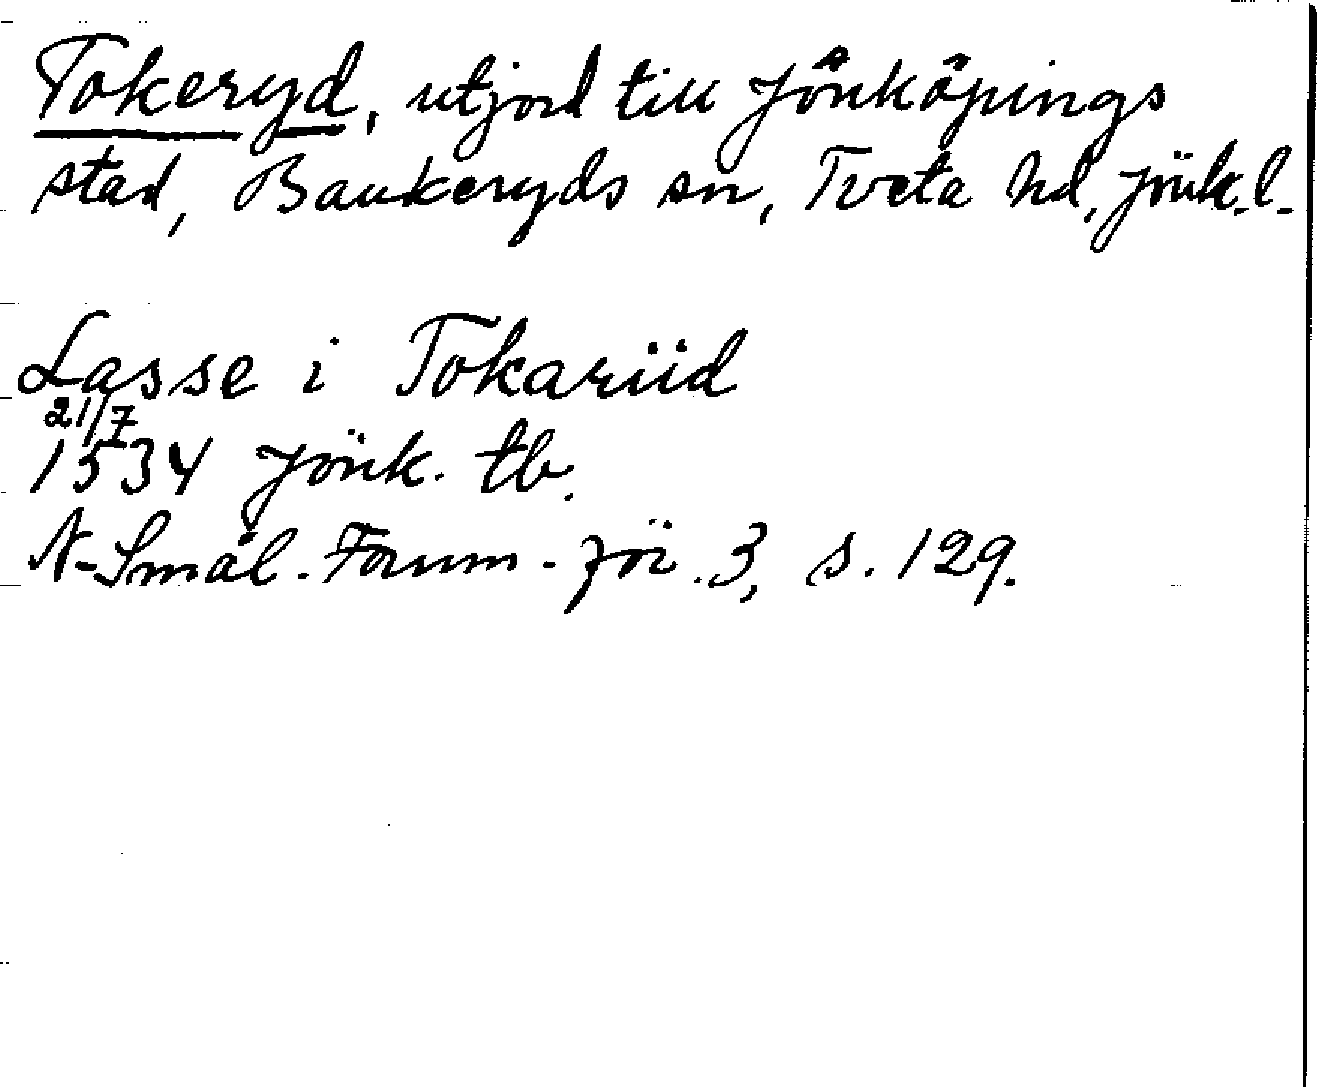 Tokeryd, utjord till Jönköpings
stad, Bankeryds sn, Tveta hd, Jönk. l.
Lasse i Tokariid
21/7
1534 Jönk. tb.
N. Smål. Fornm. för. 3, s. 129.